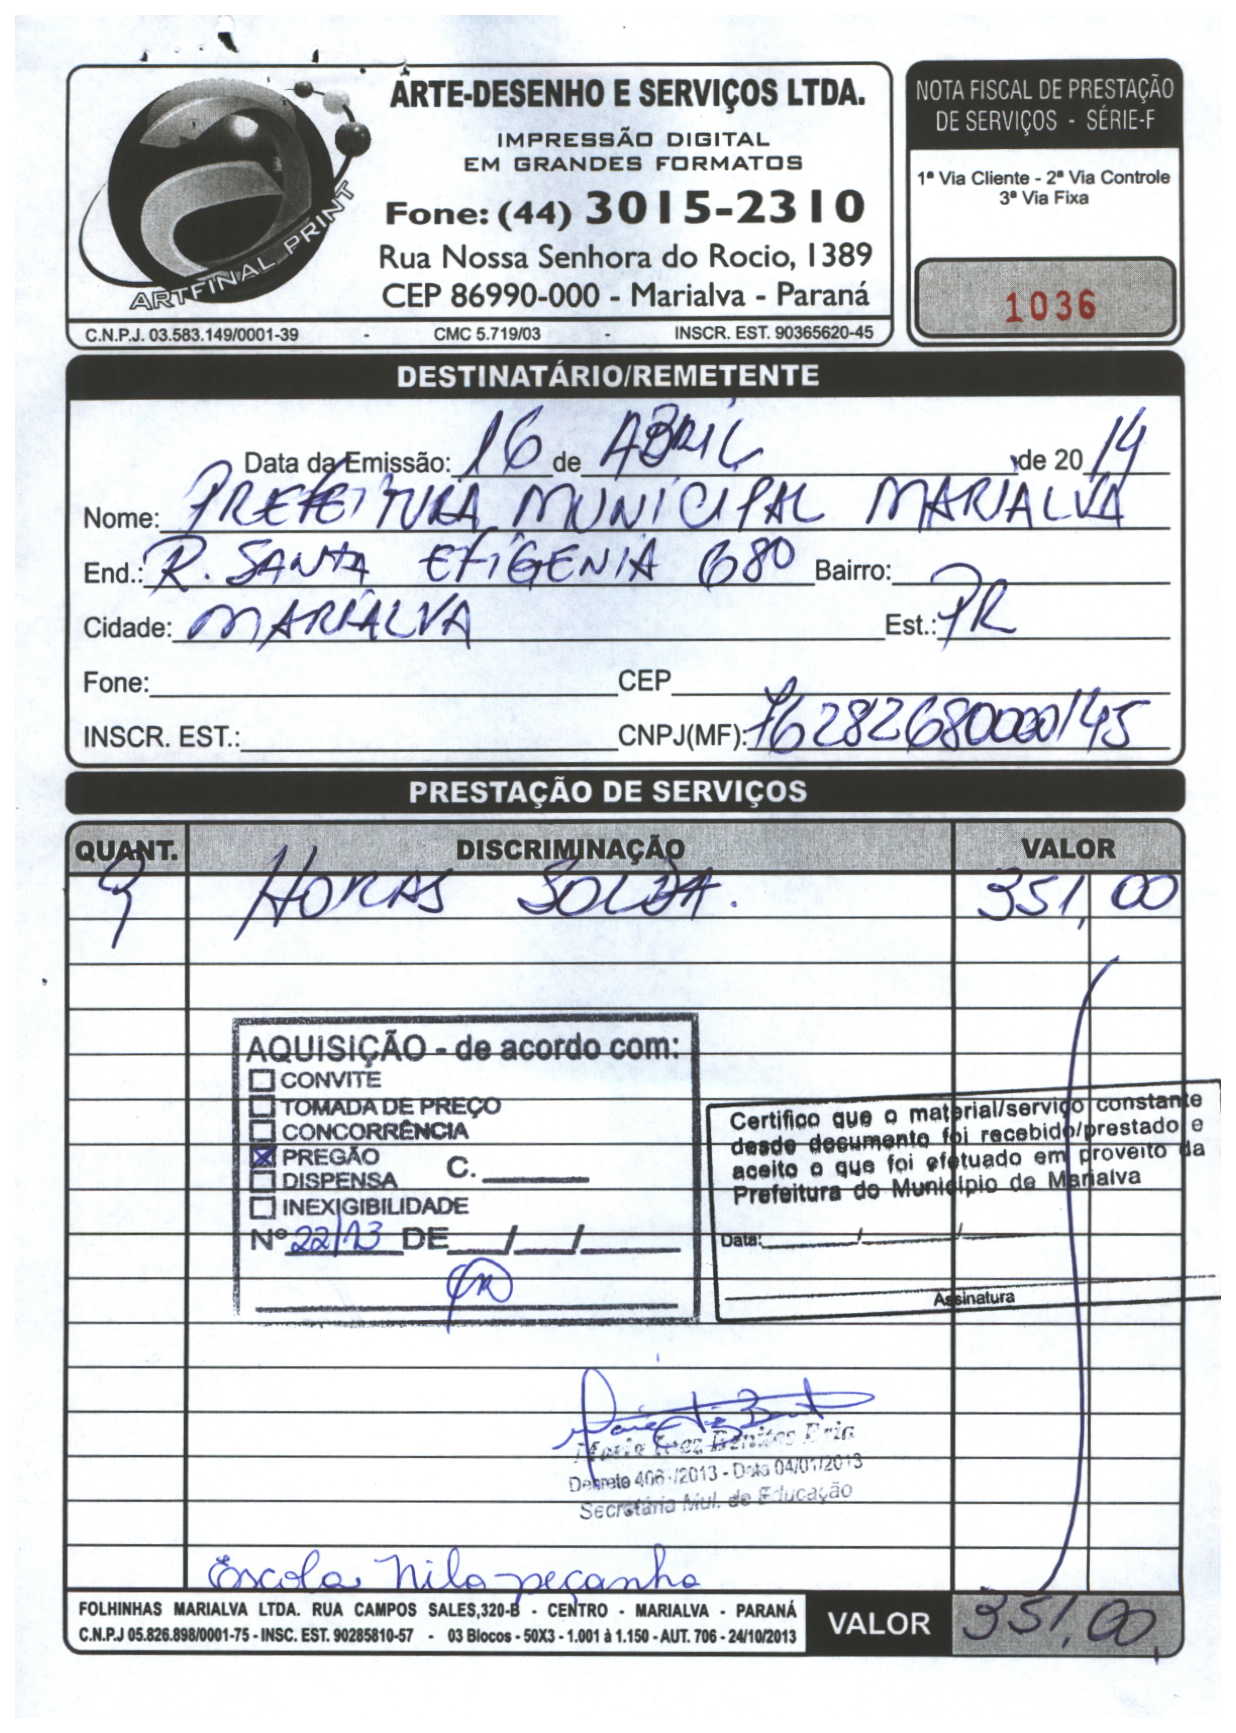 ARTE-DESENHO E SERVIÇOS LTDA.
IMPRESSÃO DIGITAL
EM GRANDES FORMATOS
Fone: (44) 3015-2310
Rua Nossa Senhora do Rocio, 1389
CEP 86990-000 - Marialva - Paraná
ARTFINAL PRINT
C.N.P.J. 03.583.149/0001-39 - CMC 5.719/03 - INSCR. EST. 90365620-45
NOTA FISCAL DE PRESTAÇÃO
DE SERVIÇOS - SÉRIE-F
1ª Via Cliente - 2ª Via Controle
3ª Via Fixa
1036
DESTINATÁRIO/REMETENTE
Data da Emissão: 16 de ABRIL de 2014
Nome: PREFEITURA MUNICIPAL MARIALVA
End.: R. SANTA EFIGENIA 680 Bairro:
Cidade: MARIALVA Est.: PR
Fone: CEP
INSCR. EST.: CNPJ(MF): 76282680000145
PRESTAÇÃO DE SERVIÇOS
QUANT. DISCRIMINAÇÃO VALOR
9 HORAS SOLDA. 351,00
AQUISIÇÃO - de acordo com:
CONVITE
TOMADA DE PREÇO
CONCORRÊNCIA
PREGÃO
DISPENSA C.
INEXIGIBILIDADE
Nº 22/13 DE / /
Certifico que o material/serviço constante
desde documento foi recebido/prestado e
aceito o que foi efetuado em proveito da
Prefeitura do Município de Marialva
Data: / /
Assinatura
Maria Inez Benites
Decreto 406 /2013 - Data 04/01/2013
Secretária Mul. de Educação
Escola Nilo peçanha
FOLHINHAS MARIALVA LTDA. RUA CAMPOS SALES,320-B - CENTRO - MARIALVA - PARANÁ
C.N.P.J 05.826.898/0001-75 - INSC. EST. 90285810-57 - 03 Blocos - 50X3 - 1.001 à 1.150 - AUT. 706 - 24/10/2013
VALOR 351,00